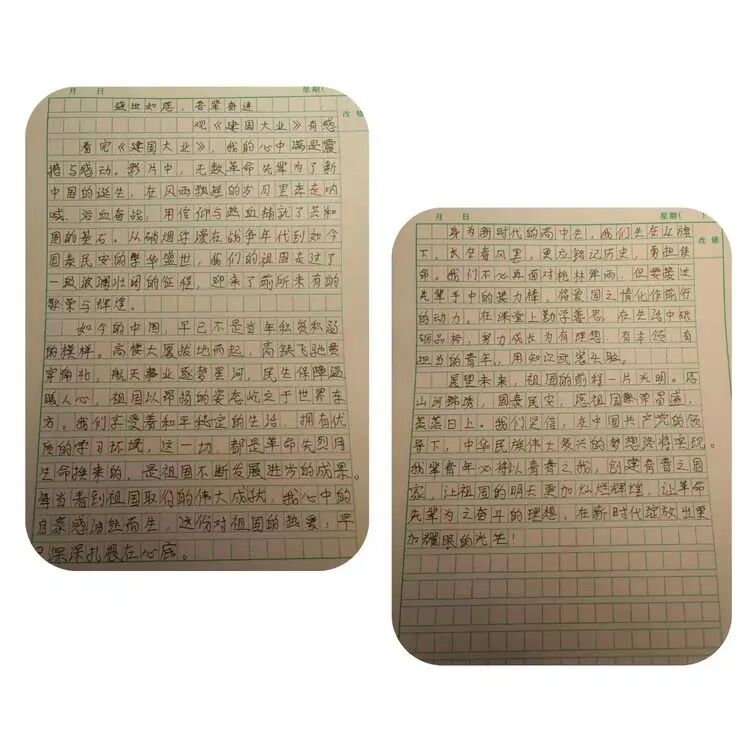 月 日 星期(
改错
盛世如愿，吾辈奋进
观《建国大业》有感
看完《建国大业》，我的心中满是震
撼与感动。影片中，无数革命先辈为了新
中国的诞生，在风雨飘摇的岁月里奔走呐
喊、浴血奋战，用信仰与热血铺就了共和
国的基石。从硝烟弥漫在战争年代到如今
国泰民安的繁华盛世，我们的祖国走过了
一段波澜壮阔的征程，迎来了前所未有的
繁荣与辉煌。
如今的中国，早已不是当年积贫积弱
的模样。高楼大厦拔地而起，高铁飞驰贯
穿南北，航天事业逐梦星河，民生保障温
暖人心，祖国以昂扬的姿态屹立于世界东
方。我们享受着和平稳定的生活，拥有优
质的学习环境，这一切，都是革命先烈用
生命换来的，是祖国不断发展进步的成果。
每当看到祖国取得的伟大成就，我心中的
自豪感油然而生，这份对祖国的热爱，早
已深深扎根在心底。
月 日 星期( )
改错
身为新时代的高中生，我们生在红旗
下，长在春风里，更应铭记历史，勇担使
命。我们不必再面对枪林弹雨，但要接过
先辈手中的接力棒，将爱国之情化作前行
的动力。在课堂上勤学善思，在生活中砥
砺品格，努力成长为有理想、有本领、有
担当的青年，用知识武装头脑。
展望未来，祖国的前程一片光明。愿
山河锦绣，国泰民安；愿祖国繁荣昌盛，
蒸蒸日上。我们坚信，在中国共产党的领
导下，中华民族伟大复兴的梦想终将实现。
我辈青年必将以青春之我，创建青春之国
家，让祖国的明天更加灿烂辉煌，让革命
先辈为之奋斗的理想，在新时代绽放出更
加耀眼的光芒！